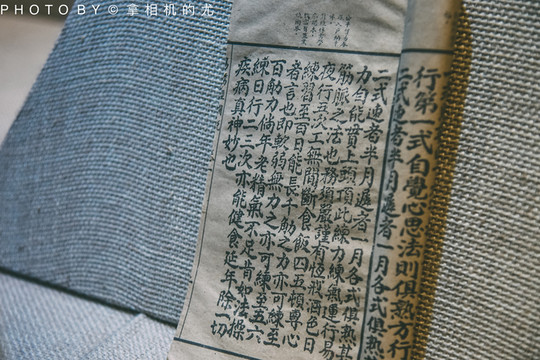 PHOTO BY © 拿相机的尤
行第一式自覺心思法則俱熟方行
二式速者半月遲者一月各式俱熟
二式速者半月遲者一月各式俱熟其
力自能貫上頭頂此練力練氣運行易
筋脈之法也務須嚴謹有恆戒酒色日
夜行五次工無間斷食飯四五頓尊心
練習至百日能長千觔之力亦可練至
者言也即軟弱無力之亦可練至五六
百觔力倘年老精氣不足肯如法操
練日行二三次亦能健食延年除一切
疾病真神妙也